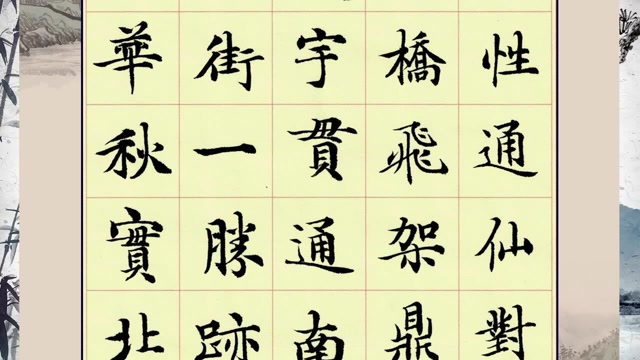 性通仙對
橋飛架鼎
宇貫通南
街一勝跡
華秋實北